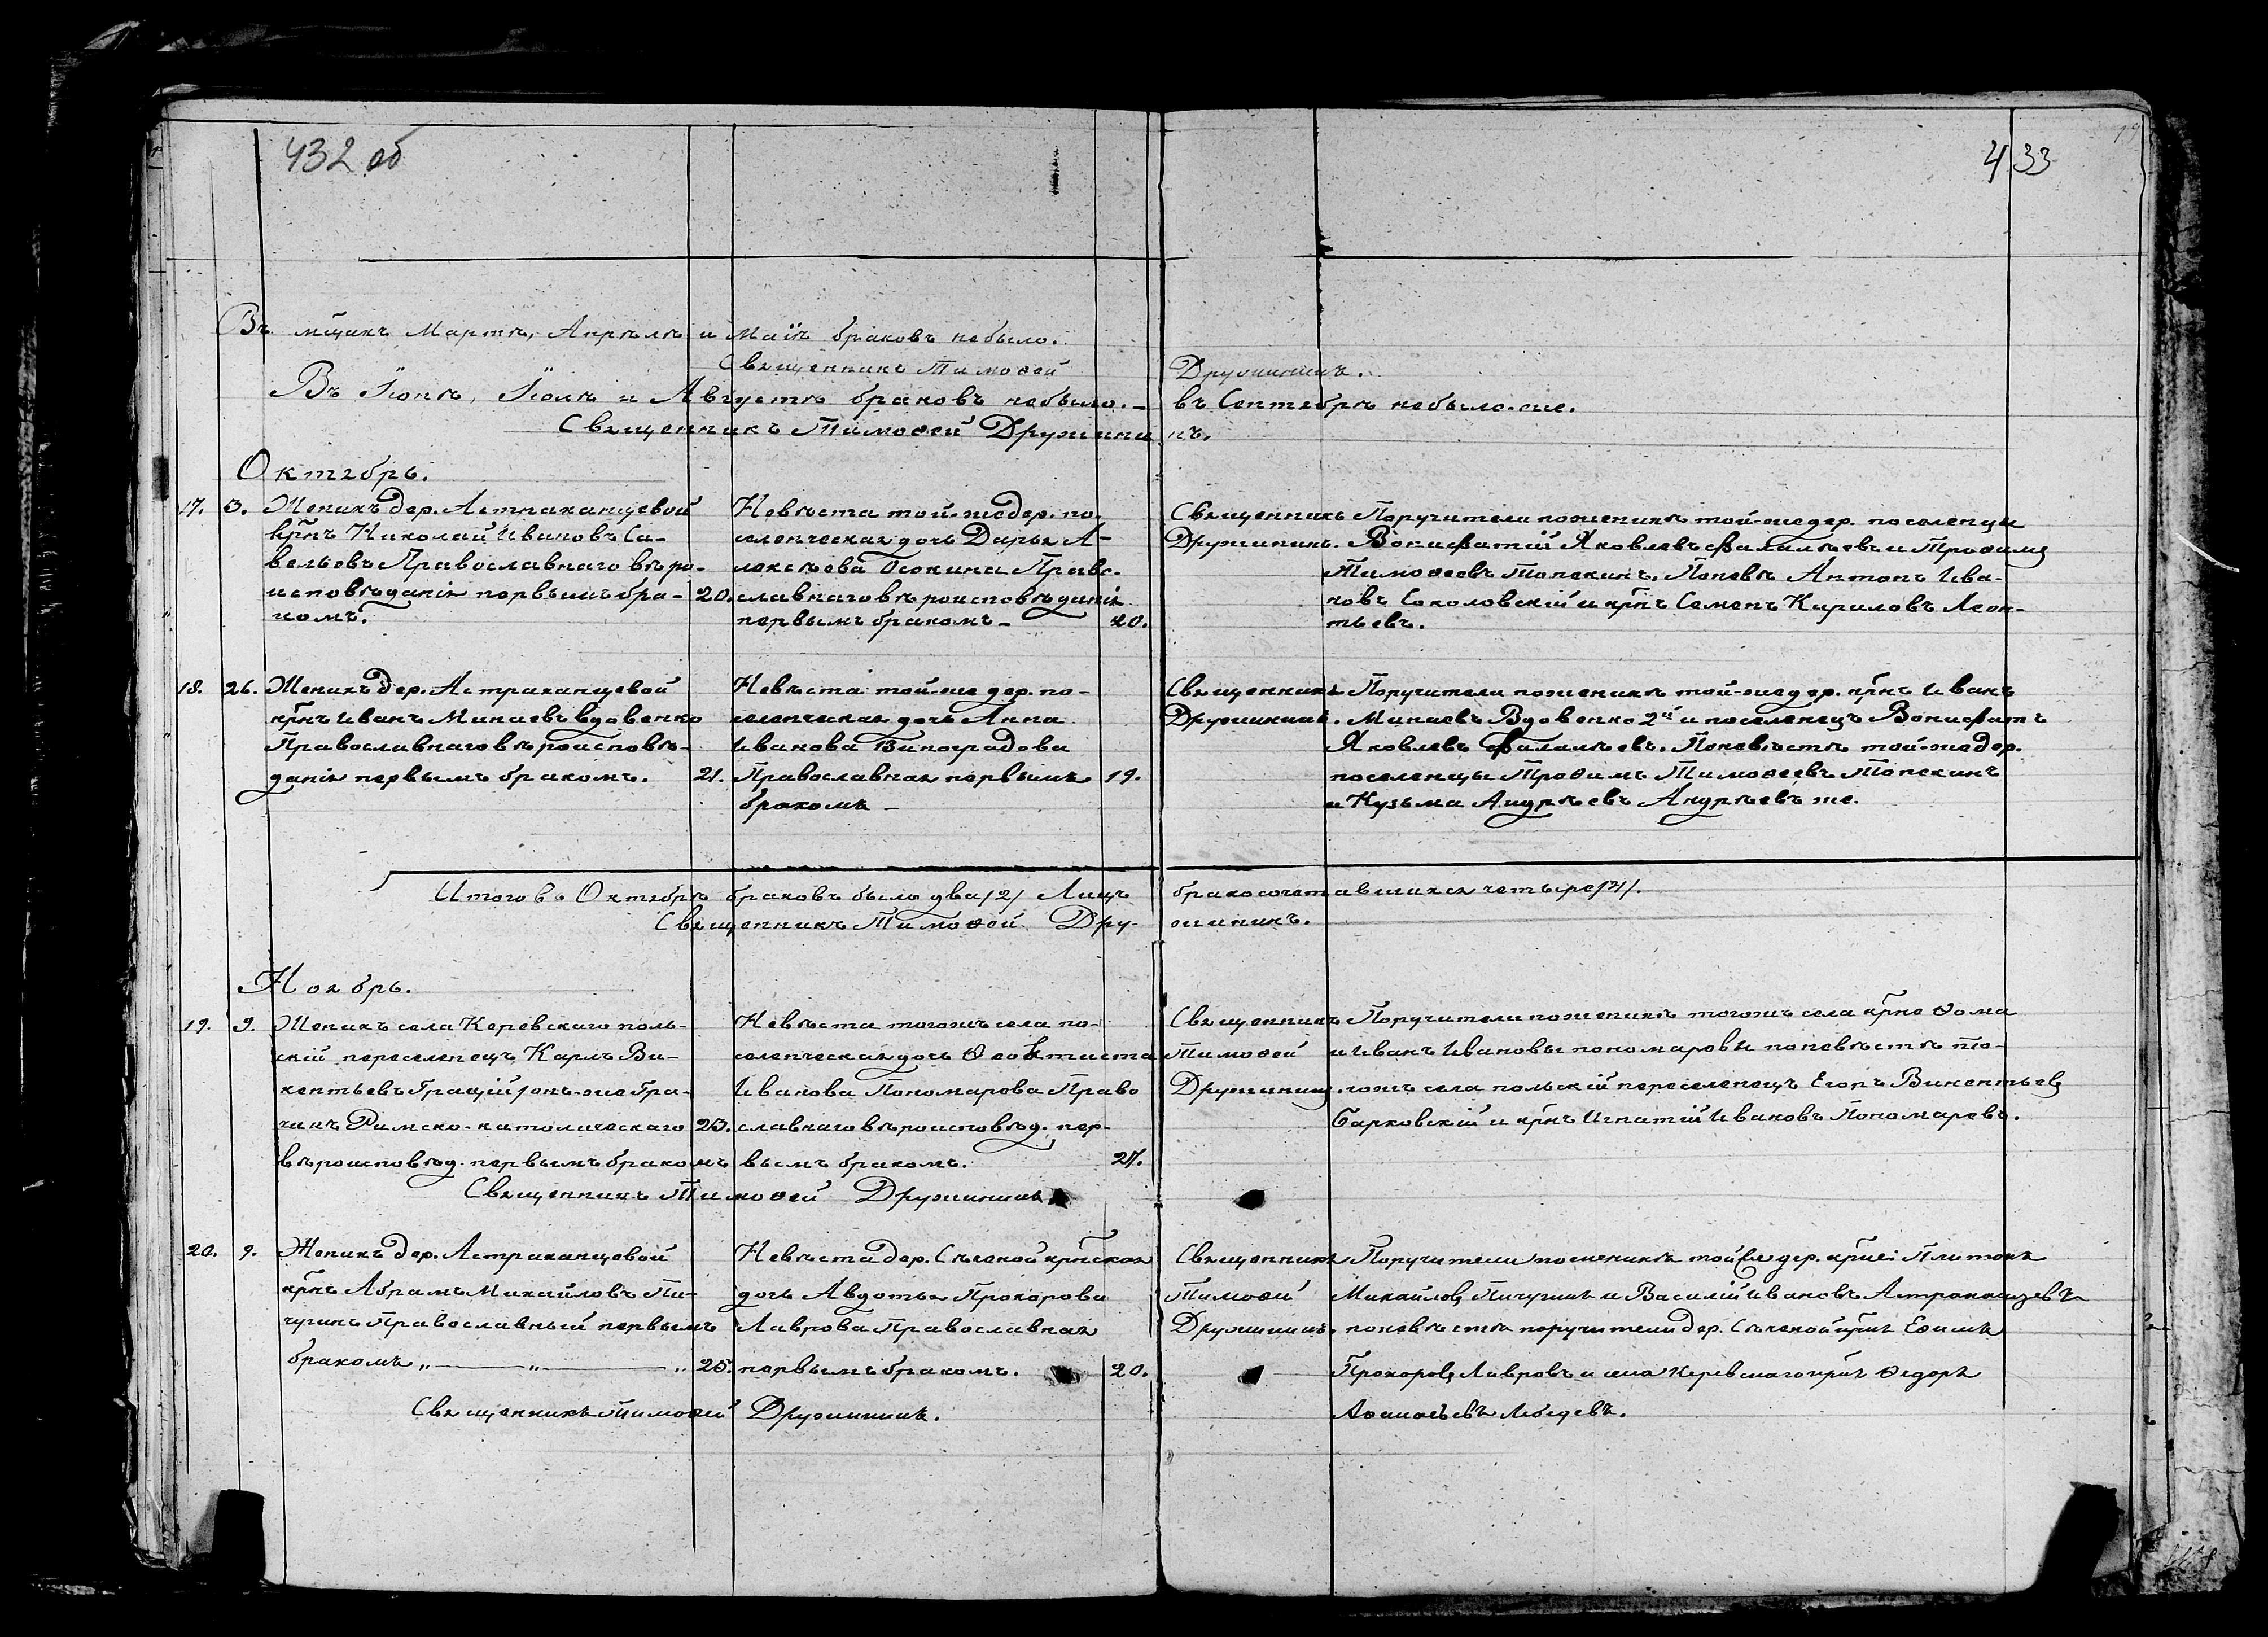 432 об
433
19
Въ мѣсяцѣ Мартѣ, Апрѣлѣ и Маіѣ браковъ небыло.
Священникъ Тимофей Дружининъ.
Въ Іюнѣ, Іюлѣ и Августѣ браковъ небыло. — въ Сентябрѣ небыло-же.
Священникъ Тимоѳей Дружининъ.
Октябрь.
17. 3. Женихъ дер. Астраханцевой
крнъ Николай Ивановъ Са-
вельевъ Православнаго вѣро-
исповѣданія первымъ бра- 20.
комъ.
Невѣста той-же дер. по-
селенческая дочь Дарья А-
лексѣева Осокина Право-
славнаго вѣроисповѣданія
первымъ бракомъ — 20.
Священникъ
Дружининъ.
Поручители по женихѣ той-же дер. поселенцы
Вонифатій Яковлевъ Фалалѣевъ и Трофимъ
Тимофеевъ Топекинъ. Поневѣ Антонъ Ива-
новъ Соколовскій и крнъ Семенъ Кириловъ Леон-
тьевъ.
18. 26. Женихъ дер. Астраханцевой
крнъ Иванъ Минаевъ Вдовенко
Православнаго вѣроисповѣ-
данія первымъ бракомъ. 21.
Невѣста той-же дер. по-
селенческая дочь Анна
Иванова Виноградова
Православная первымъ 19.
бракомъ —
Священникъ
Дружининъ.
Поручители по женихѣ той-же дер. крнъ Иванъ
Минаевъ Вдовенко 2й и поселенецъ Вонифатъ
Яковлевъ Фалалѣевъ. Поневѣстѣ той-же дер.
поселенцы Трофимъ Тимофеевъ Топекинъ
и Кузьма Андрѣевъ Андрѣевъ же.
Итого въ Октябрѣ браковъ было два /2/ Лицъ бракосочетавшихся четыре /4/.
Священникъ Тимоѳей Дружининъ.
Ноябрь.
19. 9. Женихъ села Керевскаго поль-
скій переселенецъ Карлъ Ви-
кентьевъ Грацій /онъ-же Гра-
чикъ Римско-католическаго 23.
вѣроисповѣд. первымъ бракомъ
Невѣста тогожъ села по-
селенческая дочь Ѳеоктиста
Иванова Пономарова Право
славнаго вѣроисповѣд. пер-
вымъ бракомъ. 27.
Священникъ
Тимоѳей
Дружининъ.
Поручители по женихѣ тогожъ села крне Ѳома
и Иванъ Ивановы Пономаровы поневѣстѣ то-
гожъ села польскій переселенецъ Егоръ Викентьевъ
Барковскій и крнъ Игнатій Ивановъ Пономаревъ.
Священникъ Тимоѳей Дружининъ
20. 9. Женихъ дер. Астраханцевой
крнъ Абрамъ Михайловъ Пи-
чугинъ Православный первымъ
бракомъ „ — „ — „ 25.
Невѣста дер. Сѣченой крнская
дочь Авдотья Прохорова
Лаврова Православная
первымъ бракомъ. 20.
Священникъ
Тимоѳей
Дружининъ.
Поручители по женихѣ той же дер. крне: Платонъ
Михайловъ Пичугинъ и Василій Ивановъ Астраханцевъ
поневѣстѣ поручители дер. Сѣченой крнъ Ефимъ
Прохоровъ Лавровъ и села Керевскаго крнъ Ѳедоръ
Аѳанасьевъ Лебедевъ.
Священникъ Тимоѳей Дружининъ.